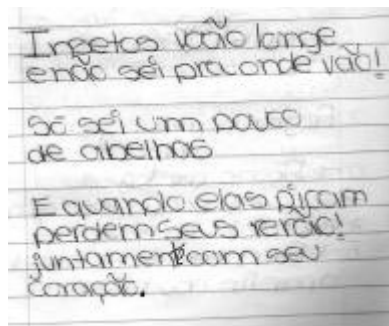 Insetos voão longe
e não sei pra onde vão!
Só sei um pouco
de abelhas
E quando elas picam
perdem seus ferão!
juntamente com seu
coração.